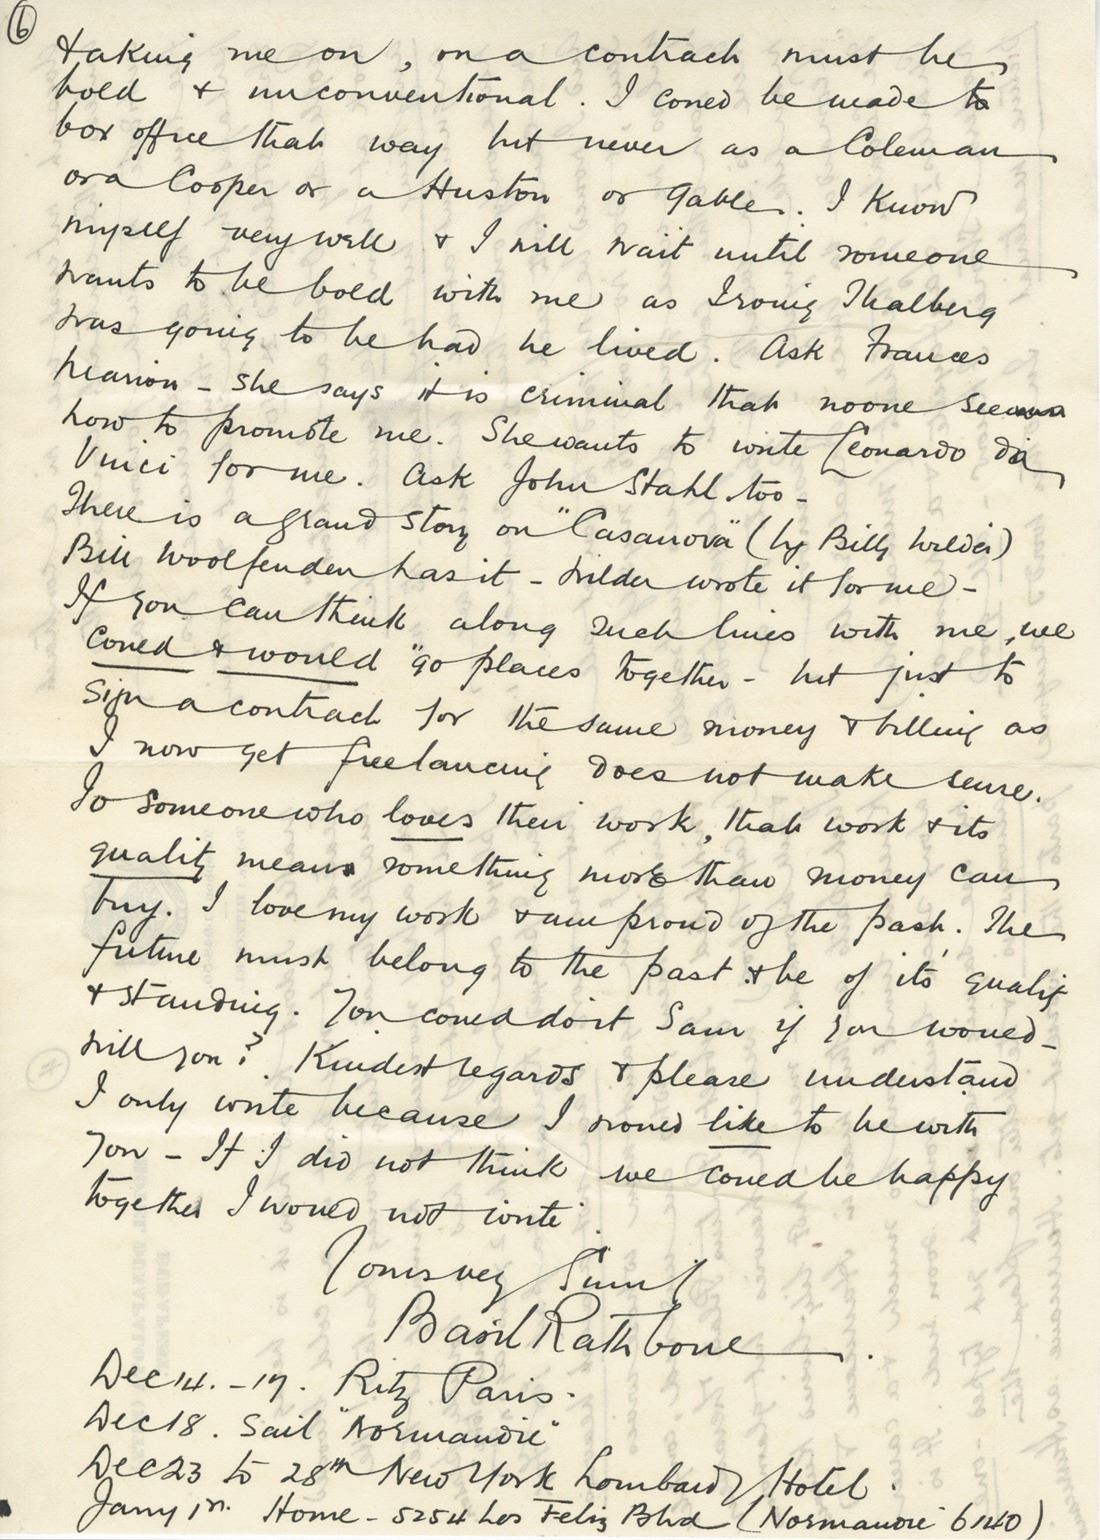 6
taking me on, on a contract must be
bold & unconventional. I could be made to
box office that way but never as a Coleman
or a Cooper or a Huston or Gable. I know
myself very well & I will wait until someone
wants to be bold with me as Irving Thalberg
was going to be had he lived. Ask Frances
Marion - she says it is criminal that noone sees
how to promote me. She wants to write Leonardo da
Vinci for me. Ask John Stahl too -
There is a grand story on "Casanova" (by Billy Wilder)
Bill Woolfenden has it - Wilder wrote it for me -
If you can think along such lines with me, we
could & would "go places together - but just to
sign a contract for the same money & billing as
I now get freelancing does not make sense.
To someone who loves their work, that work & its
quality means something more than money can
buy. I love my work & am proud of the past. The
future must belong to the past & be of its quality
& standing. You could do it Sam if you would -
will you? Kindest regards & please understand
I only write because I would like to be with
you - If I did not think we could be happy
together I would not write.
Yours very
Basil Rathbone.
Dec 14. - 17. Ritz Paris.
Dec 18. Sail "Normandie"
Dec 23 to 28th New York Lombardy Hotel.
Jany 1st. Home - 5254 Los Feliz Blvd (Normandie 6140)